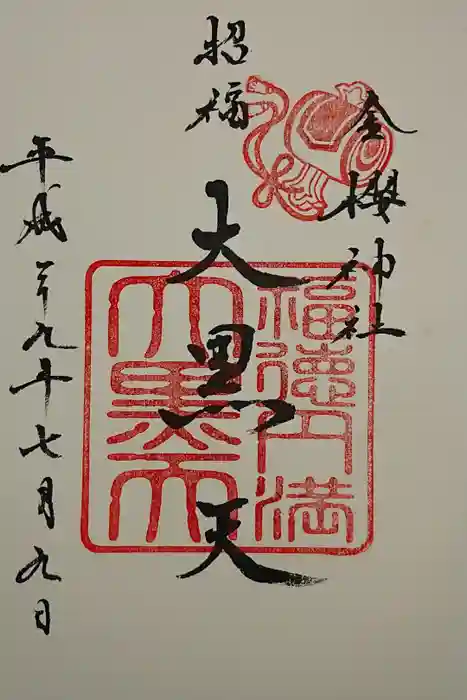 金櫻神社
招福
大黒天
福徳円満
大黒天
平成二十九年七月九日